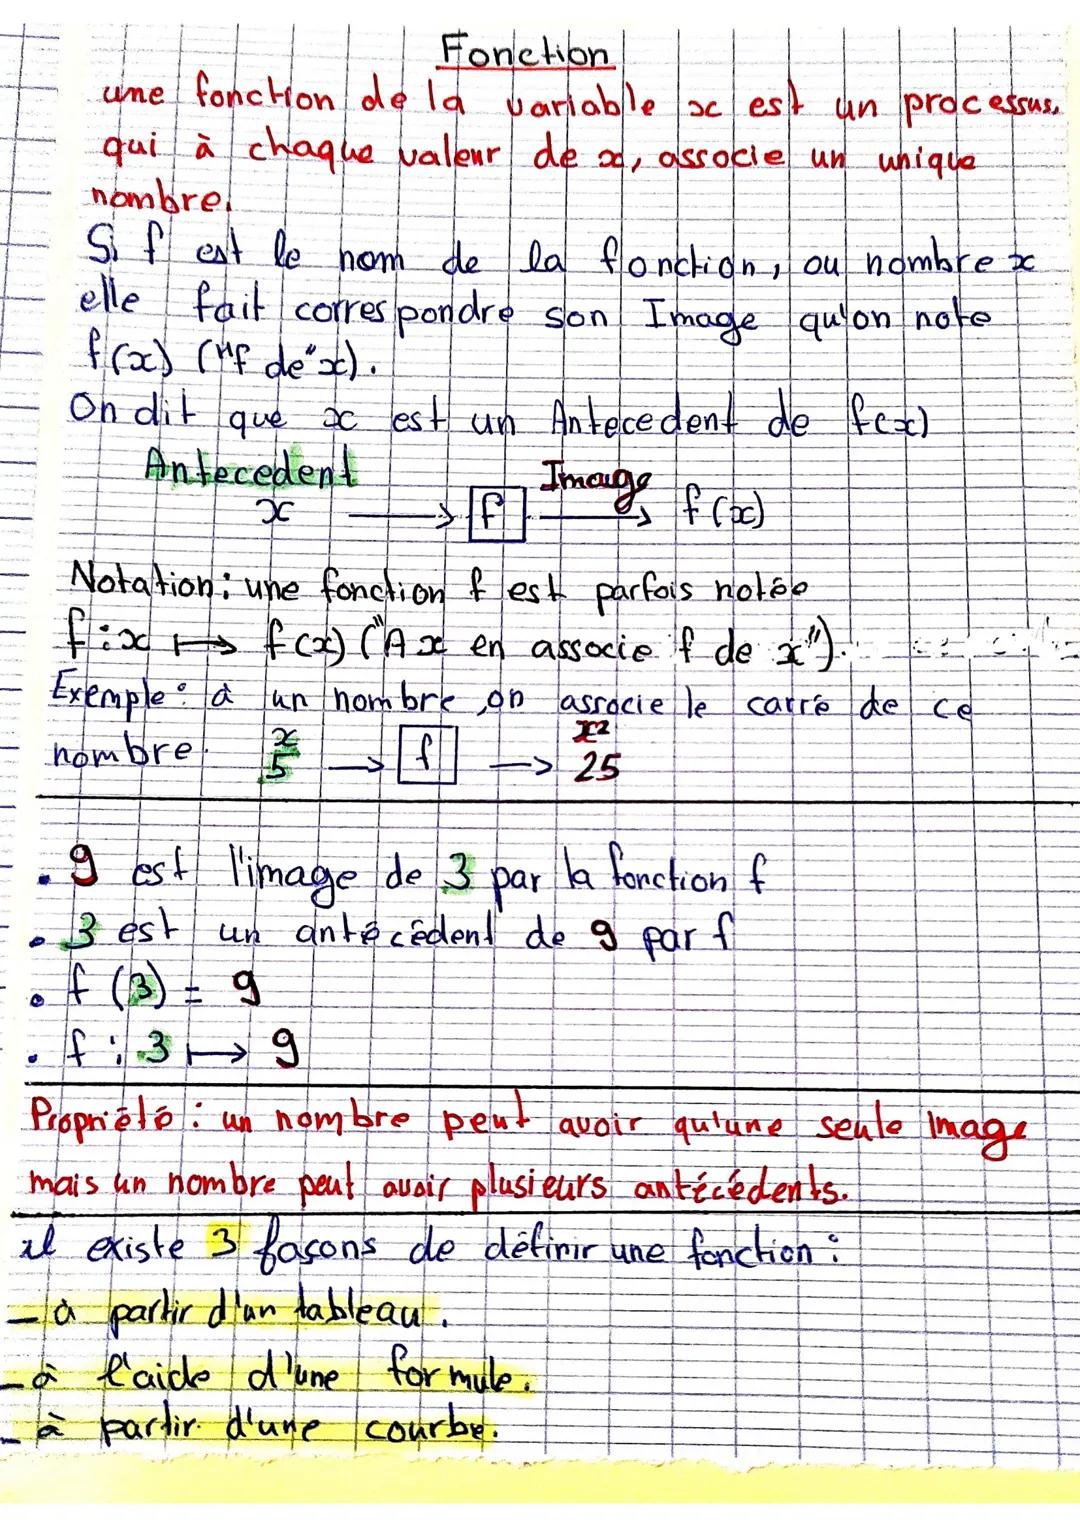 Fonction
une fonction de la variable x est un processus,
qui à chaque valeur de x, associe un unique
nombre.
Si f est le nom de la fonction, ou nombre x
elle fait correspondre son Image qu'on note
f(x) ("f de" x).
On dit que x est un Antecedent de f(x)
Antecedent Image
x → f → f(x)
Notation : une fonction f est parfois notée
f : x ↦ f(x) ("A x en associe f de x").
Exemple : à un nombre, on associe le carré de ce
nombre. x x²
5 → f → 25
• 9 est l'image de 3 par la fonction f
• 3 est un antécédent de 9 par f
• f (3) = 9
• f : 3 ↦ 9
Propriété : un nombre peut avoir qu'une seule Image
mais un nombre peut avoir plusieurs antécédents.
il existe 3 façons de définir une fonction :
- à partir d'un tableau.
- à l'aide d'une formule.
- à partir d'une courbe.